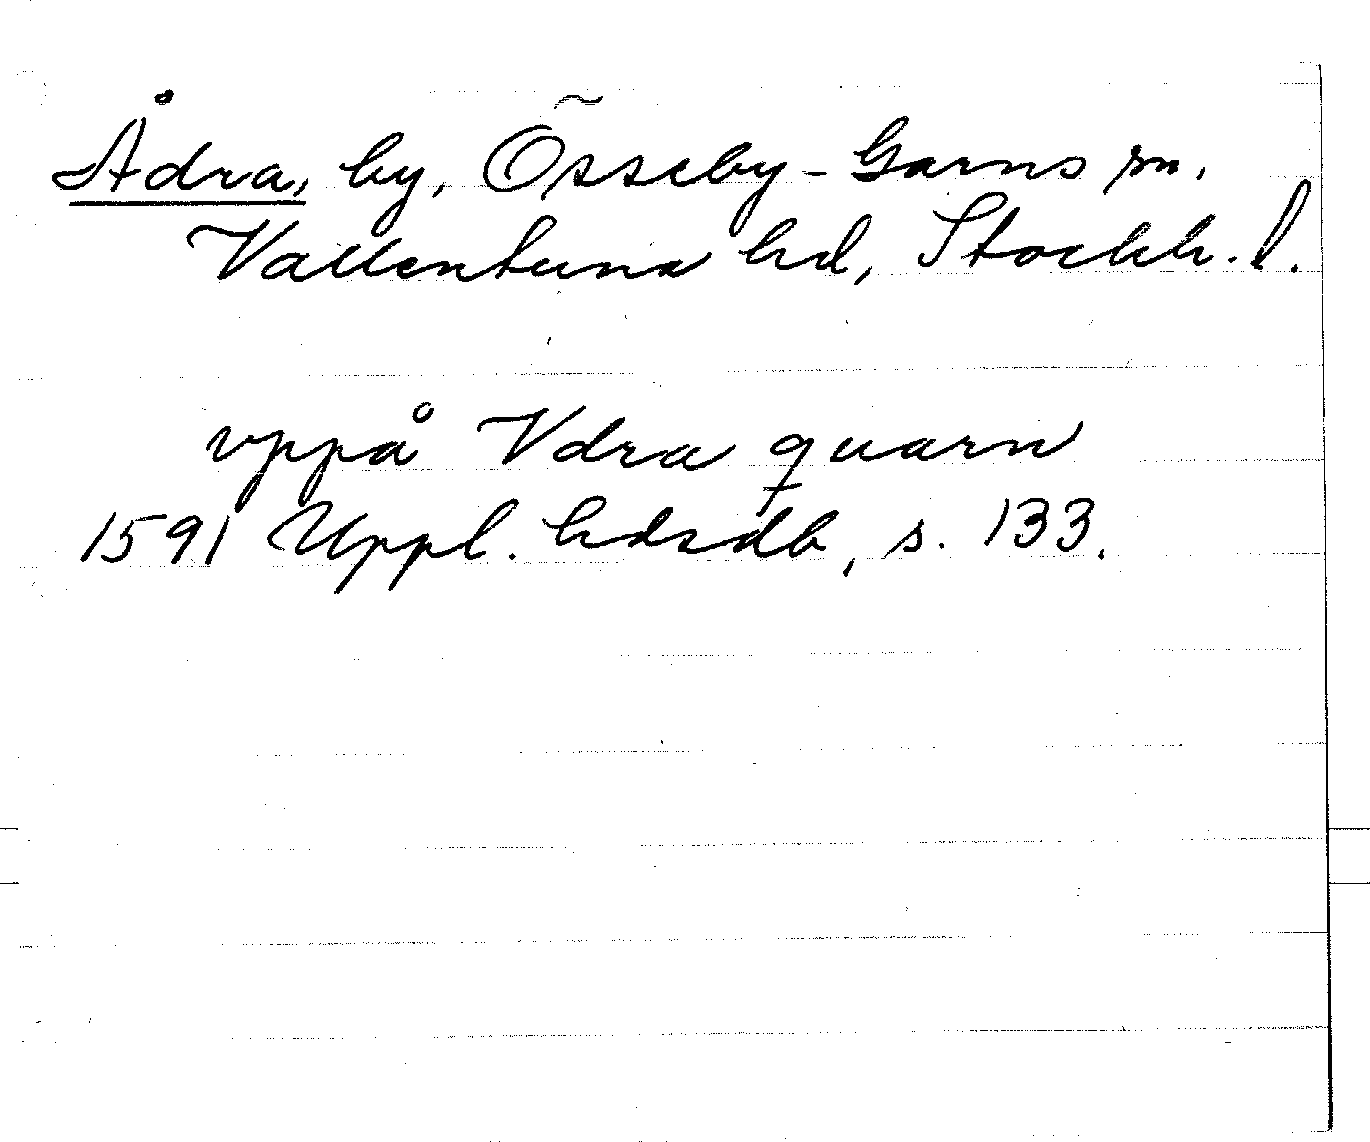 Ådra, by, Össeby-Garns sn.
Vallentuna hd, Stockh. l.
vppå Vdra quarn
1591 Uppl. hdsdb, s. 133.